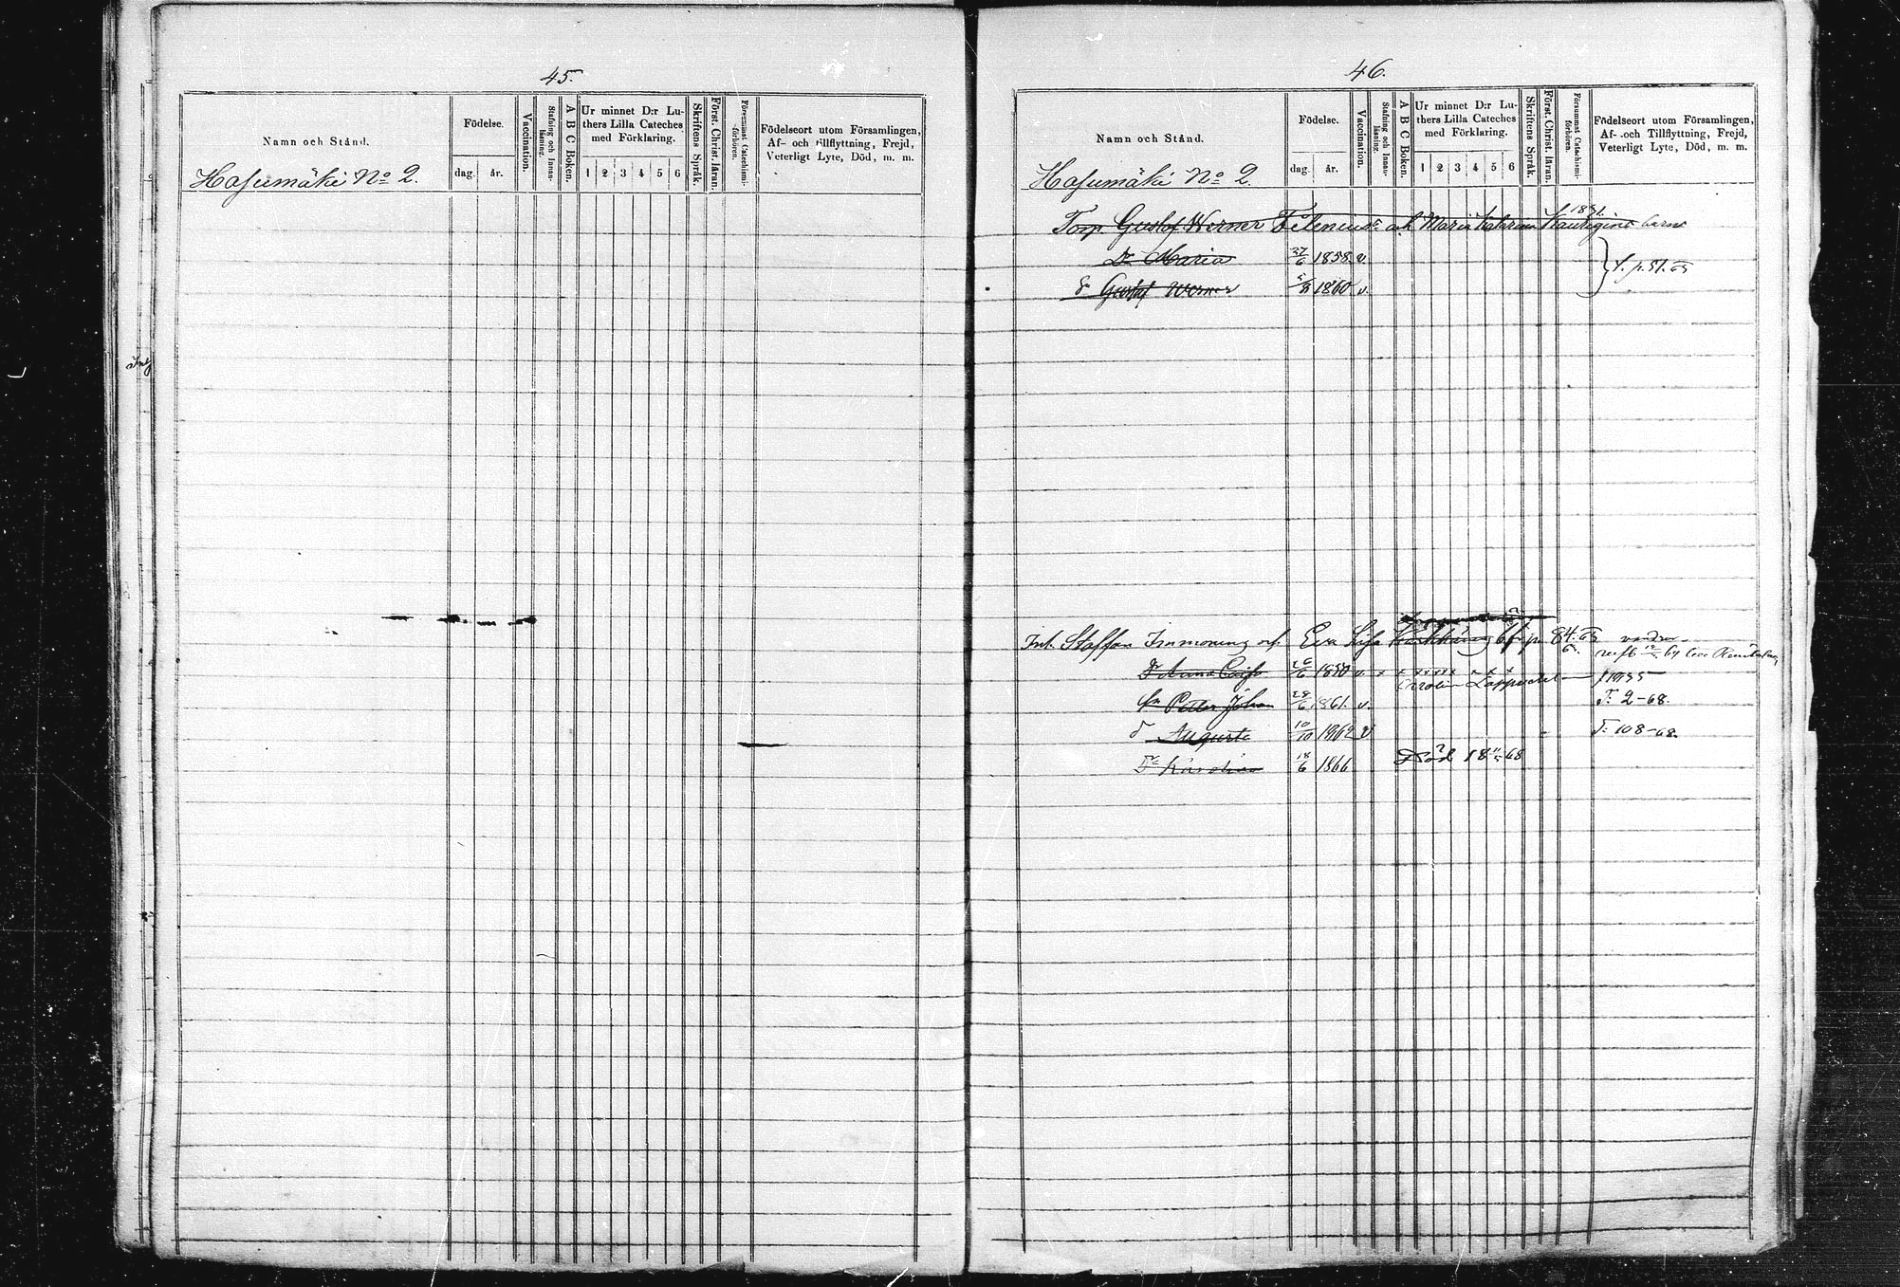 45.
Namn och Stånd.
Födelse.
dag. år.
Vaccination.
Stafning och Innan-läsning.
A B C Boken.
Ur minnet D:r Lu-
thers Lilla Cateches
med Förklaring.
1 2 3 4 5 6
Skriftens Språk.
Först. Christ. läran.
Försummat Catechismi-förhören.
Födelseort utom Församlingen,
Af- och tillflyttning, Frejd,
Veterligt Lyte, Död, m. m.
Hajumäki No 2.
46.
Namn och Stånd.
Födelse.
dag. år.
Vaccination.
Stafning och Innan-läsning.
A B C Boken.
Ur minnet D:r Lu-
thers Lilla Cateches
med Förklaring.
1 2 3 4 5 6
Skriftens Språk.
Först. Christ. läran.
Försummat Catechismi-förhören.
Födelseort utom Församlingen,
Af- och Tillflyttning, Frejd,
Veterligt Lyte, Död, m. m.
Hajumäki No 2.
Torp. Gustof Werner och Maria barn
Dr Maria 27/6 1858 v.
S Gustaf Werner 1860 v.
f. p. 51. 65
Inh. Staffan Immonung och Eva Lisa p. 84. 65
Dr Anna 26/6 1850 v. x x x x x x x x x
Sn Petter Johan 28/6 1861. v. T. 2-68.
Augusta 10/10 1862 v T. 108-68.
Dr Karolina 18/6 1866 Död 18 11/5 68